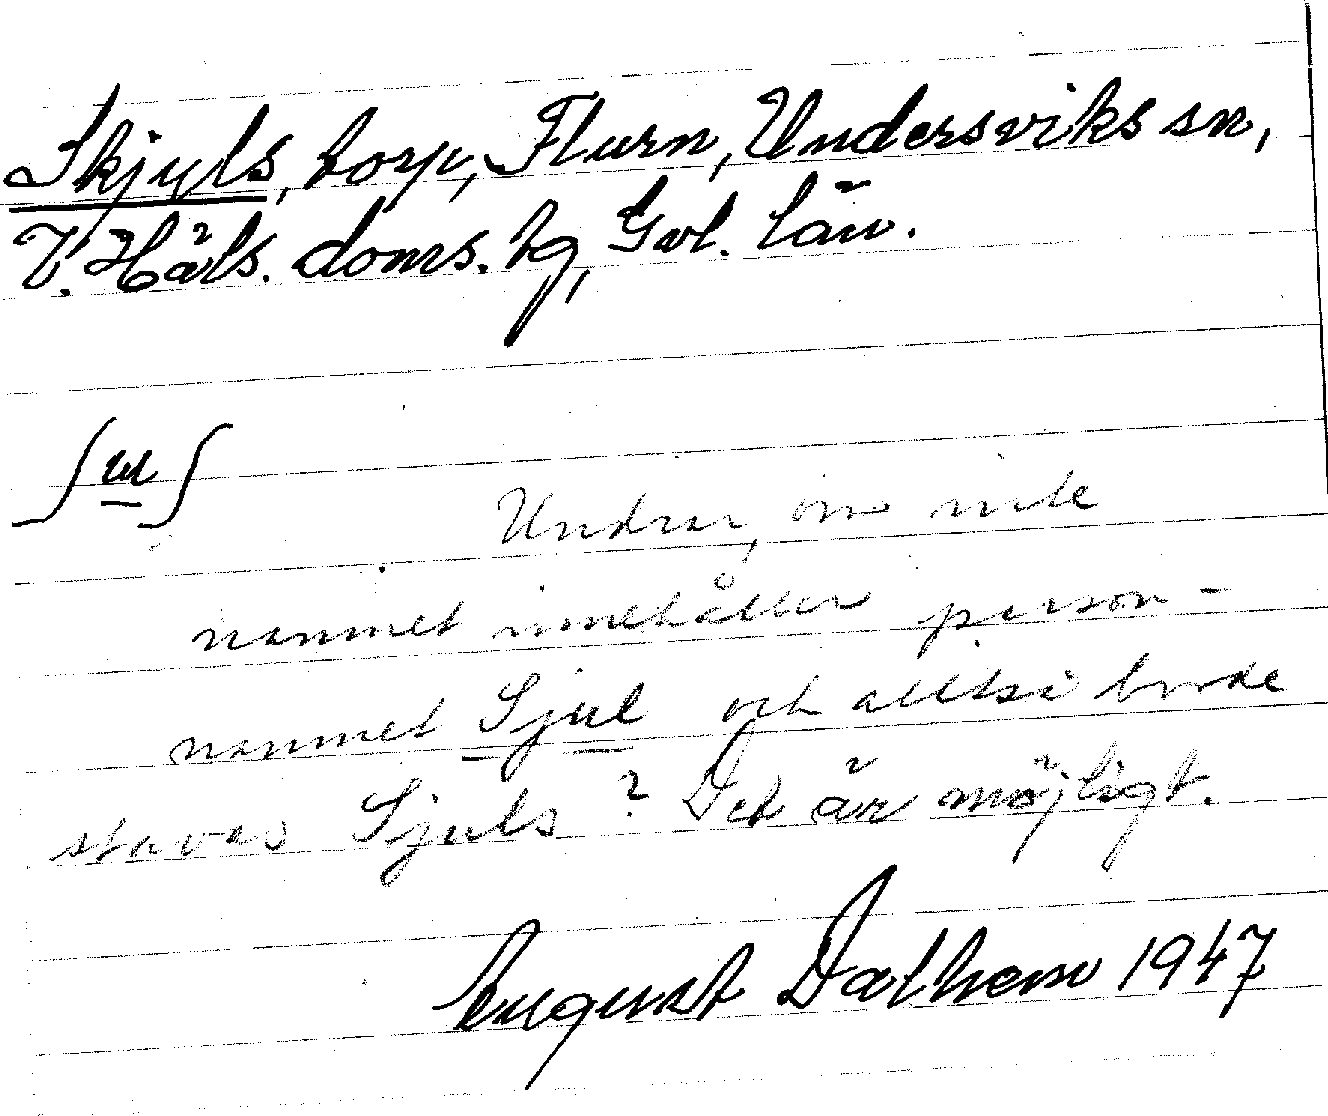 Skjuls, torp, Flurn, Undersviks sn,
V. Häls. doms. hg, Gvl. län.
Undrar, om inte
namnet innehåller person-
namnet Sjul och alltså borde
stavas Sjuls? Det är möjligt.
August Dalhem 1947